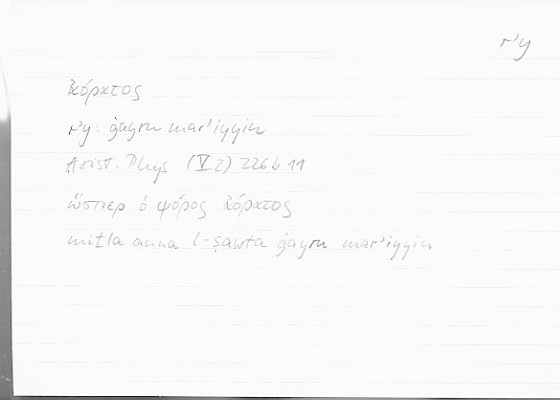 rʾy
ἀόρατος
rʾy: ġayru marʾiyyin
Arist. Phys (V 2) 226b11
ὥσπερ ὁ ψόφος ἀόρατος
miṯla anna l-ṣawta ġayru marʾiyyin